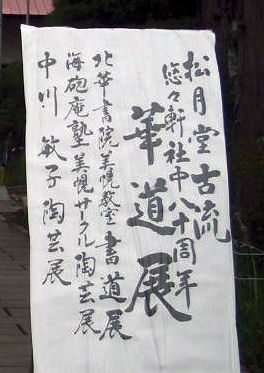 松月堂古流
悠々軒社中八十周年
華道展
北華書院美幌教室書道展
海砲庵塾美幌サークル陶芸展
中川敏子陶芸展